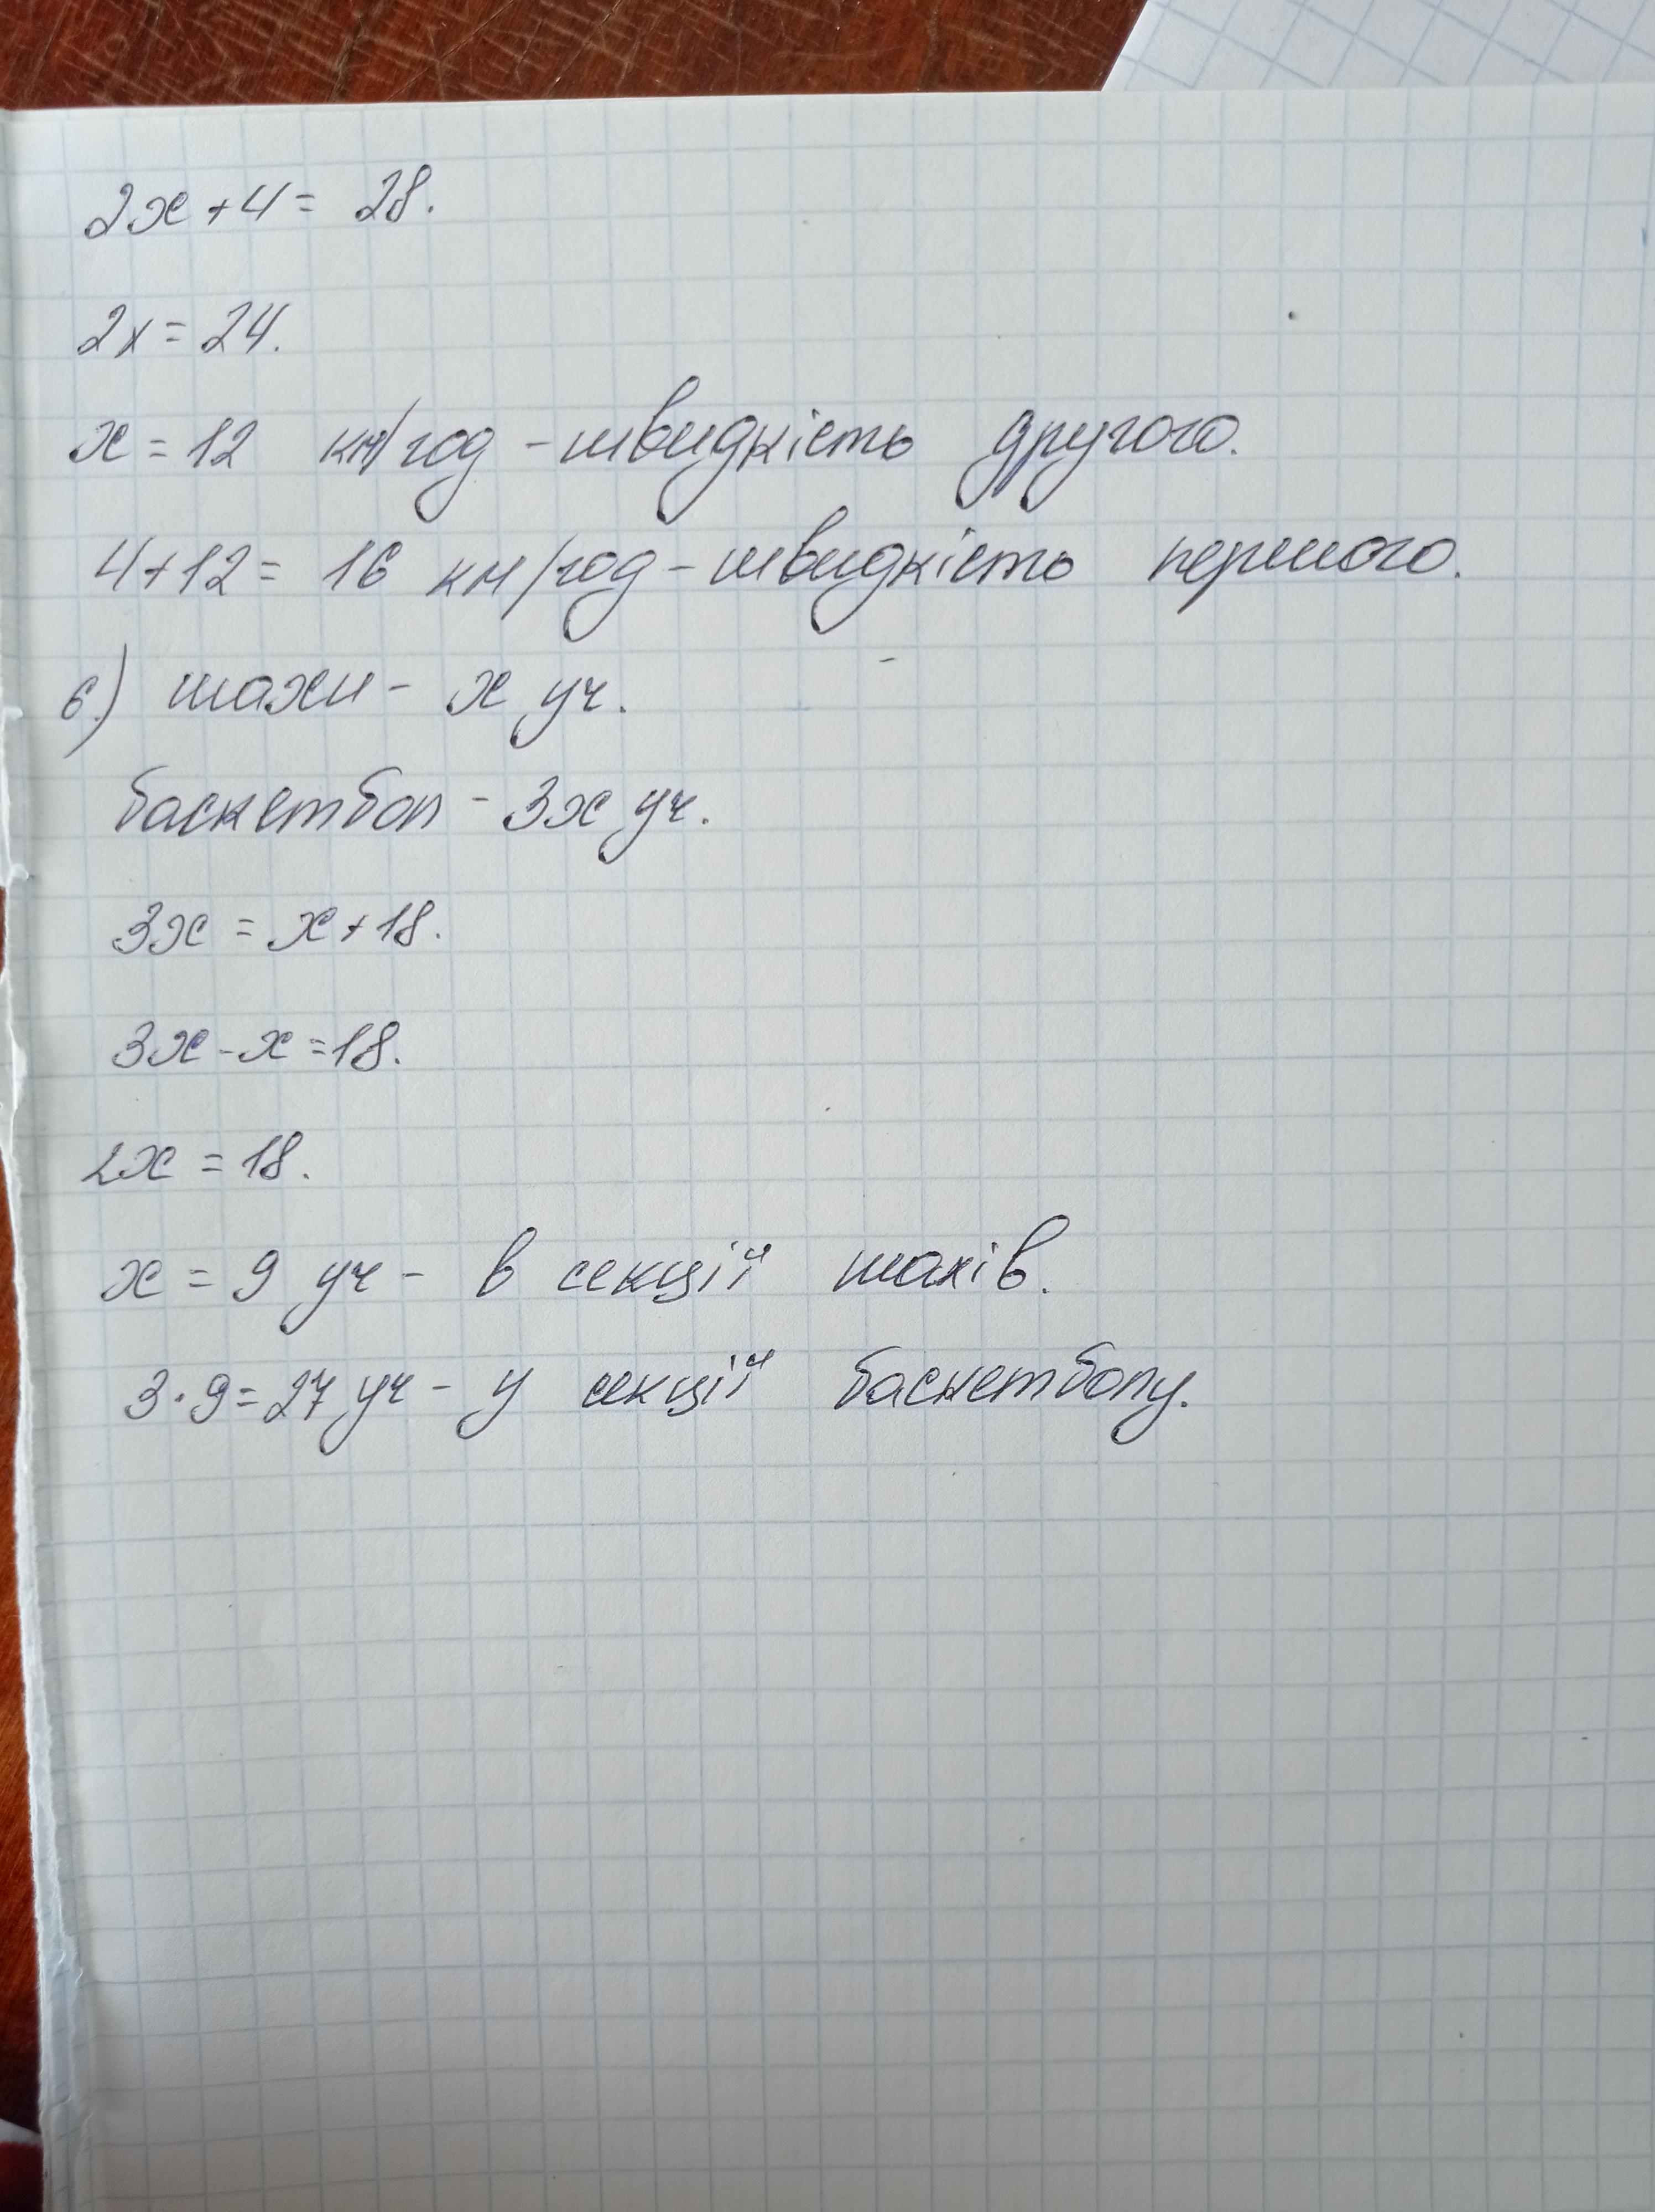 2x + 4 = 28.
2x = 24.
x = 12 км/год - швидкість другого.
4+12 = 16 км/год - швидкість першого.
6.) шахи - x уч.
баскетбол - 3x уч.
3x = x + 18.
3x - x = 18.
2x = 18.
x = 9 уч - в секції шахів.
3 · 9 = 27 уч - у секції баскетболу.